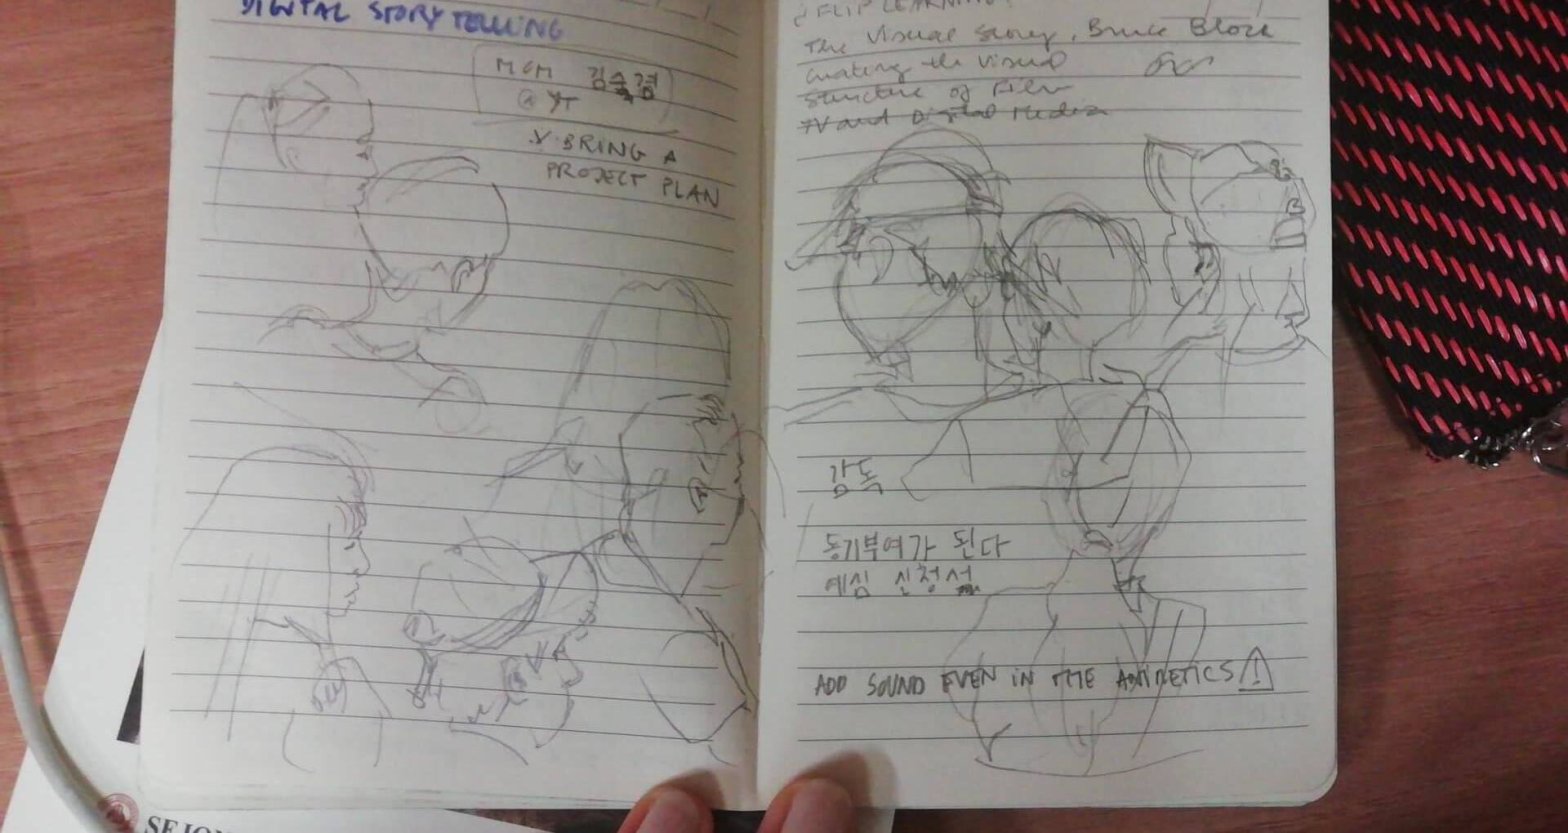 DIGITAL STORYTELLING
MCM 김수경
@ YT
BRING A
PROJECT PLAN
FLIP LEARNING
The Visual Story, Bruce Block
creating the Visual
structure of Film
TV and Digital Media
감독
동기부여가 된다
예심 신청서
ADD SOUND EVEN IN THE
SEJON